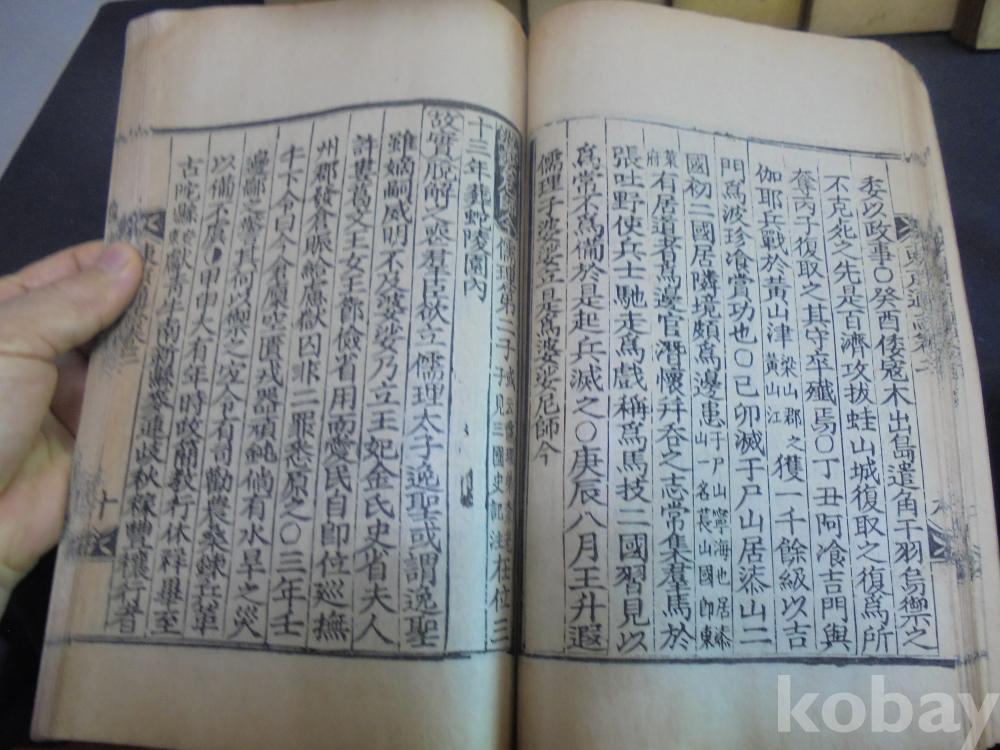 委以政事○癸酉倭寇木出島遣角干羽烏禦之
不克死之先是百濟攻拔蛙山城復取之復爲所
奪丙子復取之其守卒殲焉○丁丑阿飡吉門與
伽耶兵戰於黃山津梁山郡之黃山江獲一千餘級以吉
門爲波珍飡賞功也○己卯滅于尸山居柒山二
國初二國居隣境頗爲邊患于尸山寧海也居柒山一名萇山國即東
萊府有居道者爲邊官潛懷幷吞之志常集羣馬於
張吐野使兵士馳走爲戲稱爲馬技二國習見以
爲常不爲備於是起兵滅之○庚辰八月王升遐
儒理子婆娑立是爲婆娑尼師今
儒理第二子 見三國史記注在位三
十三年葬蛇陵園內
故實脫解之喪羣臣欲立儒理太子逸聖或謂逸聖
雖嫡嗣威明不及婆娑乃立王妃金氏史省夫人
許婁葛文王女王節儉省用而愛民自卽位巡撫
州郡發倉賑給慮獄囚非二罪悉原之○三年壬
午下令曰今倉廩空匱戎器頑鈍倘有水旱之災
邊鄙之警其何以禦之宜令有司勸農桑練兵革
以備不虞○甲申大有年時政 敎行休祥畢至
古陀縣 獻靑牛南新縣麥連歧秋稼豐穰行者
十
kobay